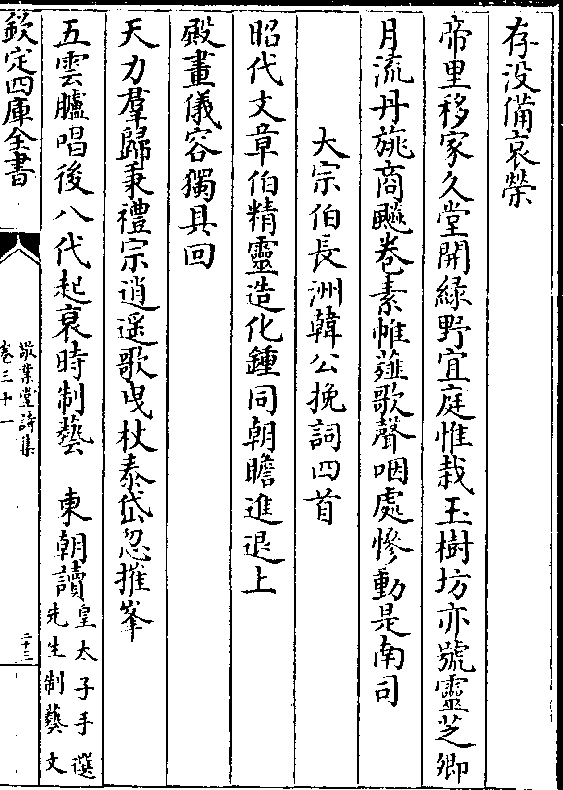 存没備哀榮
帝里移家久堂開緑野宜庭惟栽玉樹坊亦號靈芝卿
月流丹旐商飇巻素帷薤歌聲咽處慘動是南司
大宗伯長洲韓公挽詞四首
昭代文章伯精靈造化鍾同朝瞻進退上
殿畫儀容獨具回
天力羣歸秉禮宗逍遥歌曳杖泰岱忽摧峯
五雲臚唱後八代起衰時制藝　東朝讀皇太子手選先生制藝文
欽定四庫全書
敬業堂詩集
卷三十一
二十三